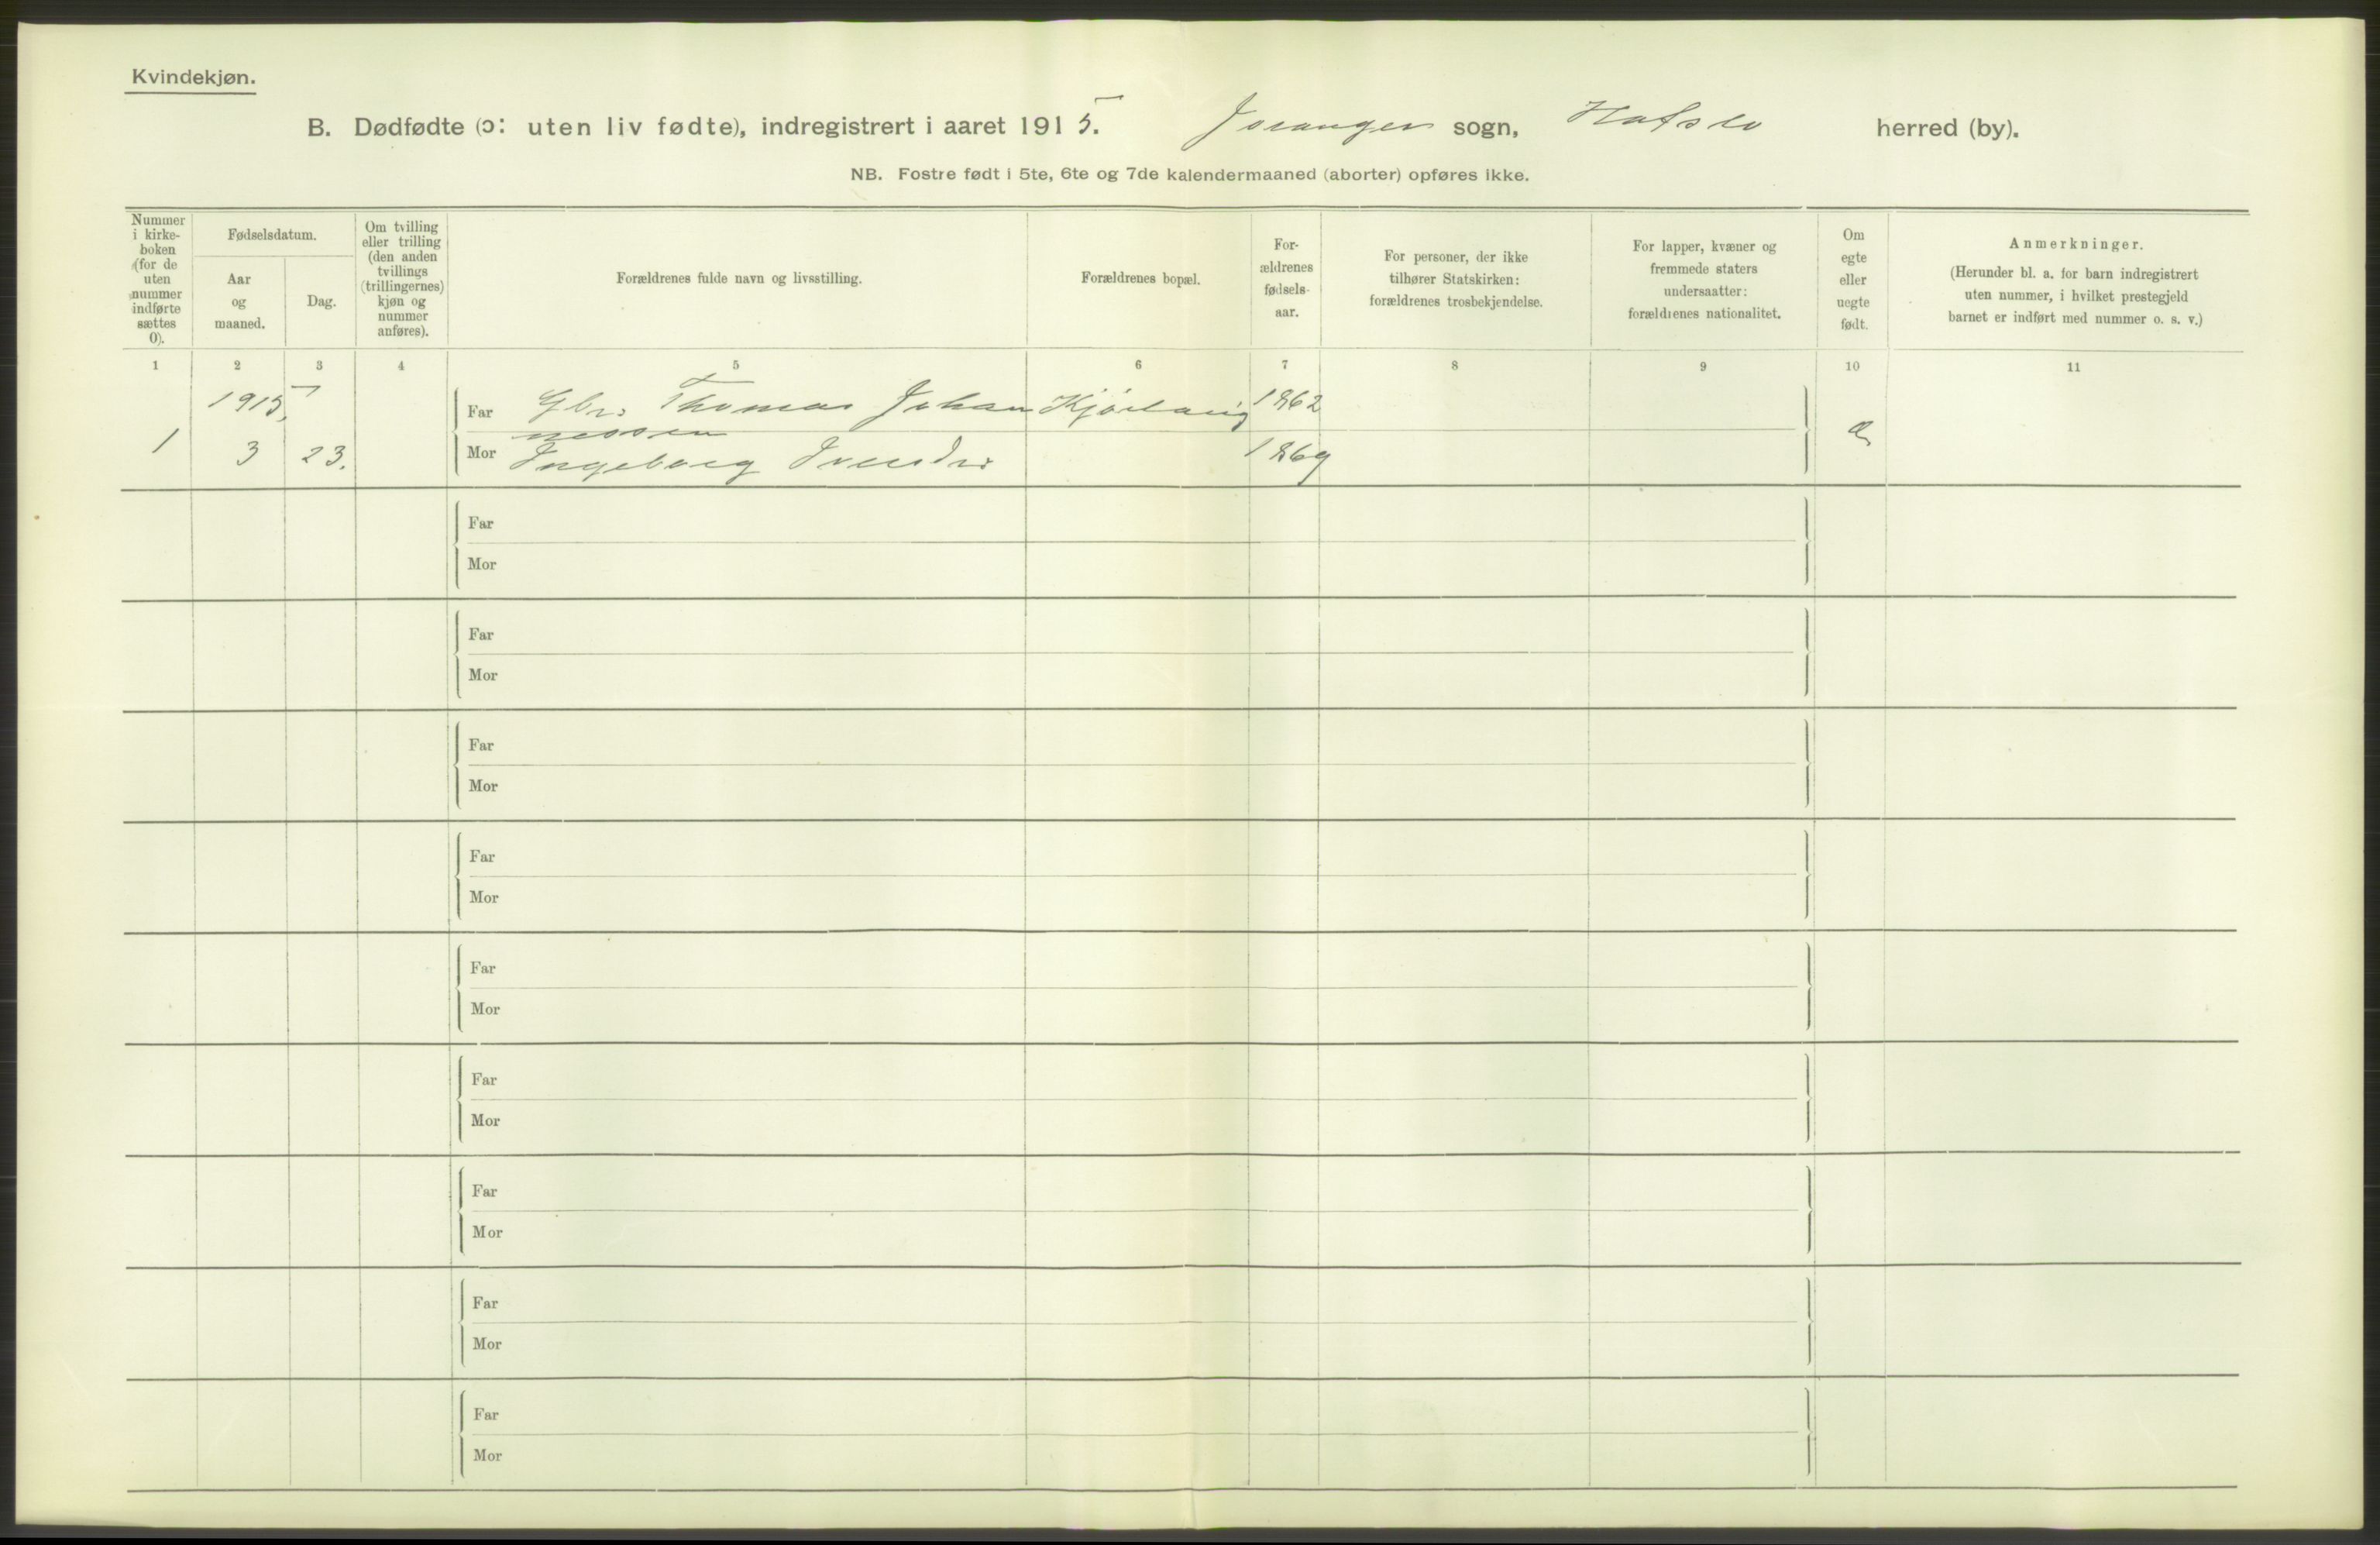 Kvindekjøn.
B. Dødfødte (ɔ: uten liv fødte), indregistrert i aaret 1915. Joranger sogn, Hafslo herred (by).
NB. Fostre født i 5te, 6te og 7de kalendermaaned (aborter) opføres ikke.
Nummer i kirke-boken (for de uten nummer indførte sættes 0).
Fødselsdatum.
Aar og maaned.
Dag.
Om tvilling eller trilling (den anden tvillings (trillingernes) kjøn og nummer anføres).
Forældrenes fulde navn og livsstilling.
Forældrenes bopæl.
For-ældrenes fødsels-aar.
For personer, der ikke tilhører Statskirken: forældrenes trosbekjendelse.
For lapper, kvæner og fremmede staters undersaatter: forældrenes nationalitet.
Om egte eller uegte født.
Anmerkninger.
(Herunder bl. a. for barn indregistrert uten nummer, i hvilket prestegjeld barnet er indført med nummer o. s. v.)
1 2 3 4 5 6 7 8 9 10 11
1915,
Far Gbr. Thomas Johan 1862
nessen
1 3 23. Mor Ingeborg 1869
Far
Mor
Far
Mor
Far
Mor
Far
Mor
Far
Mor
Far
Mor
Far
Mor
Far
Mor
Far
Mor